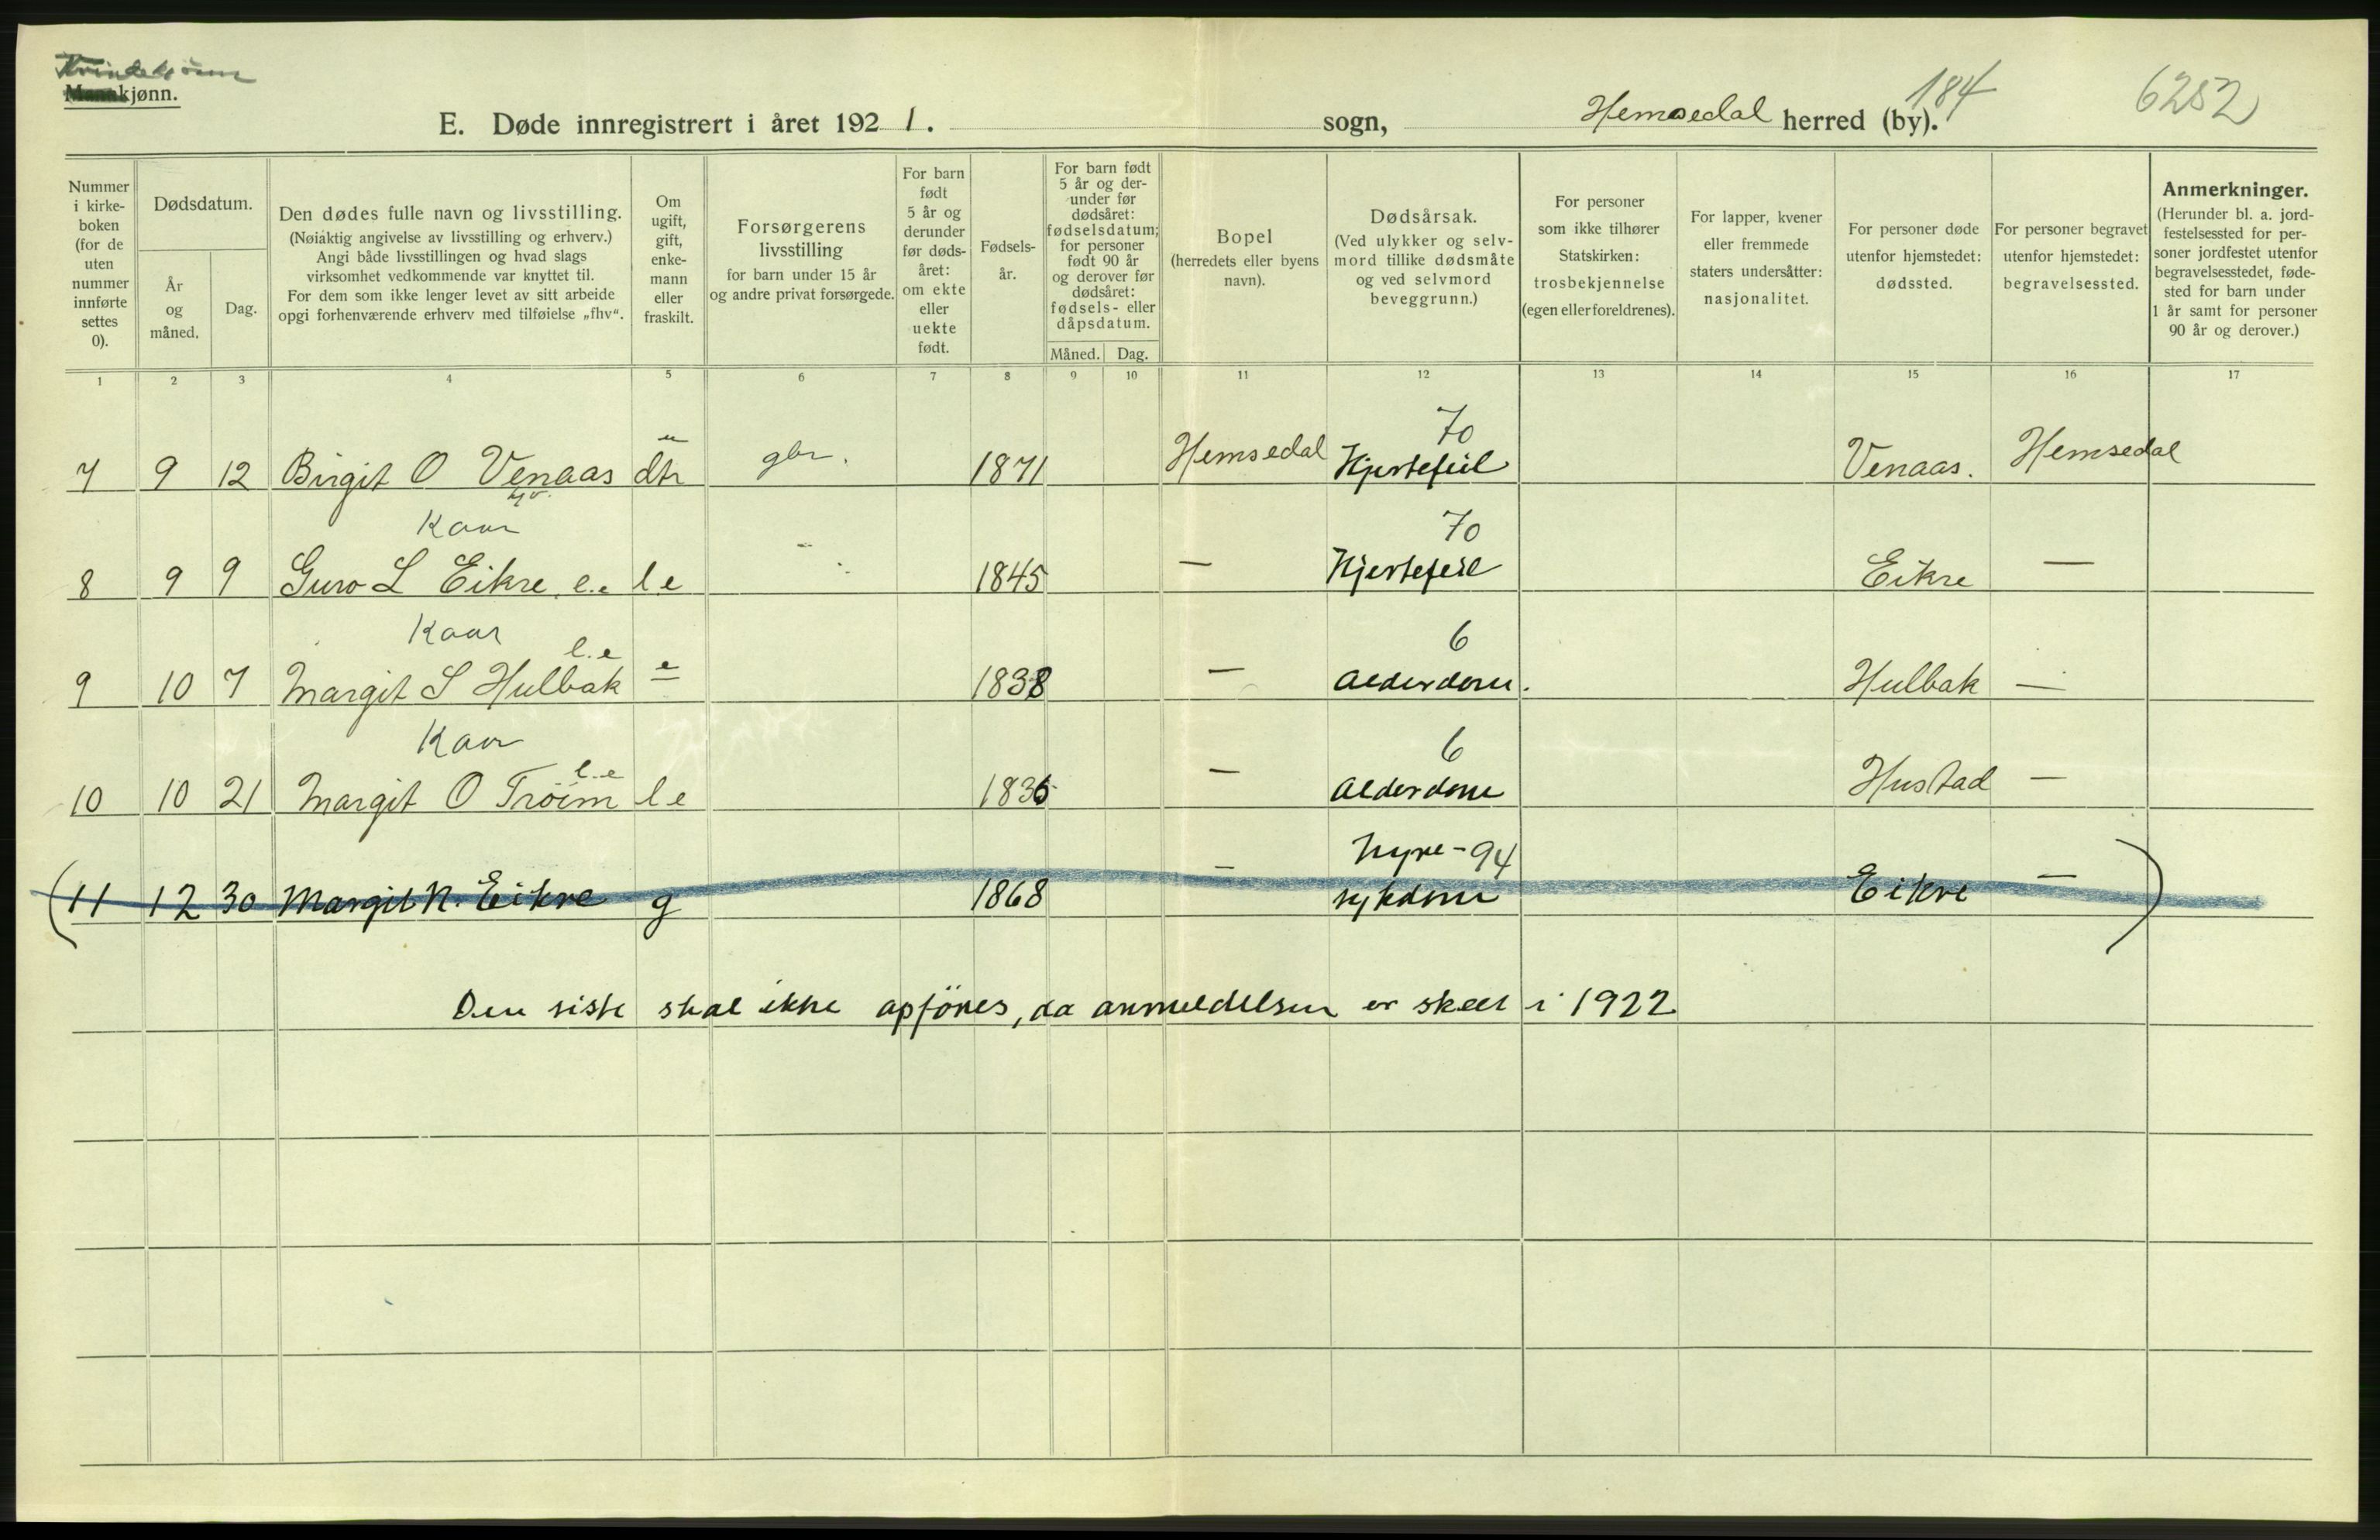 Kvindekjønn
Mannkjønn.
E. Døde innregistrert i året 1921. sogn, Hemsedal herred (by).
184
6252
Nummer i kirkeboken (for de uten nummer innførte settes 0).
Dødsdatum.
År og måned.
Dag.
Den dødes fulle navn og livsstilling.
(Nøiaktig angivelse av livsstilling og erhverv.)
Angi både livsstillingen og hvad slags
virksomhet vedkommende var knyttet til.
For dem som ikke lenger levet av sitt arbeide
opgi forhenværende erhverv med tilføielse „fhv“.
Om ugift, gift, enkemann eller fraskilt.
Forsørgerens livsstilling
for barn under 15 år
og andre privat forsørgede.
For barn født 5 år og derunder før dødsåret: om ekte eller uekte født.
Fødselsår.
For barn født 5 år og derunder før dødsåret: fødselsdatum; for personer født 90 år og derover før dødsåret: fødsels- eller dåpsdatum.
Måned. Dag.
Bopel
(herredets eller byens navn).
Dødsårsak.
(Ved ulykker og selvmord tillike dødsmåte og ved selvmord beveggrunn.)
For personer som ikke tilhører Statskirken: trosbekjennelse (egen eller foreldrenes).
For lapper, kvener eller fremmede staters undersåtter: nasjonalitet.
For personer døde utenfor hjemstedet: dødssted.
For personer begravet utenfor hjemstedet: begravelsessted.
Anmerkninger.
(Herunder bl. a. jordfestelsessted for personer jordfestet utenfor begravelsesstedet, fødested for barn under 1 år samt for personer 90 år og derover.)
1 2 3 4 5 6 7 8 9 10 11 12 13 14 15 16 17
u 70
7 9 12 Birgit O Venaas dtr gbr. 1871 Hemsedal Hjertefeil Venaas. Hemsedal
Kaar 70
8 9 9 Guro L Eikre e.e l e 1845 — Hjertefeil Eikre —
Kaar l.e 6
9 10 7 Margit S Hulbak e 1838 — Alderdom. Hulbak —
Kaar l.e 6
10 10 21 Margit O Trøim l e 1836 — Alderdom Hustad —
Nyre- 94
(11 12 30 Margit N. Eikre g 1868 — sykdom Eikre —)
Den siste skal ikke opföres, da anmeldelsen er skeet i 1922